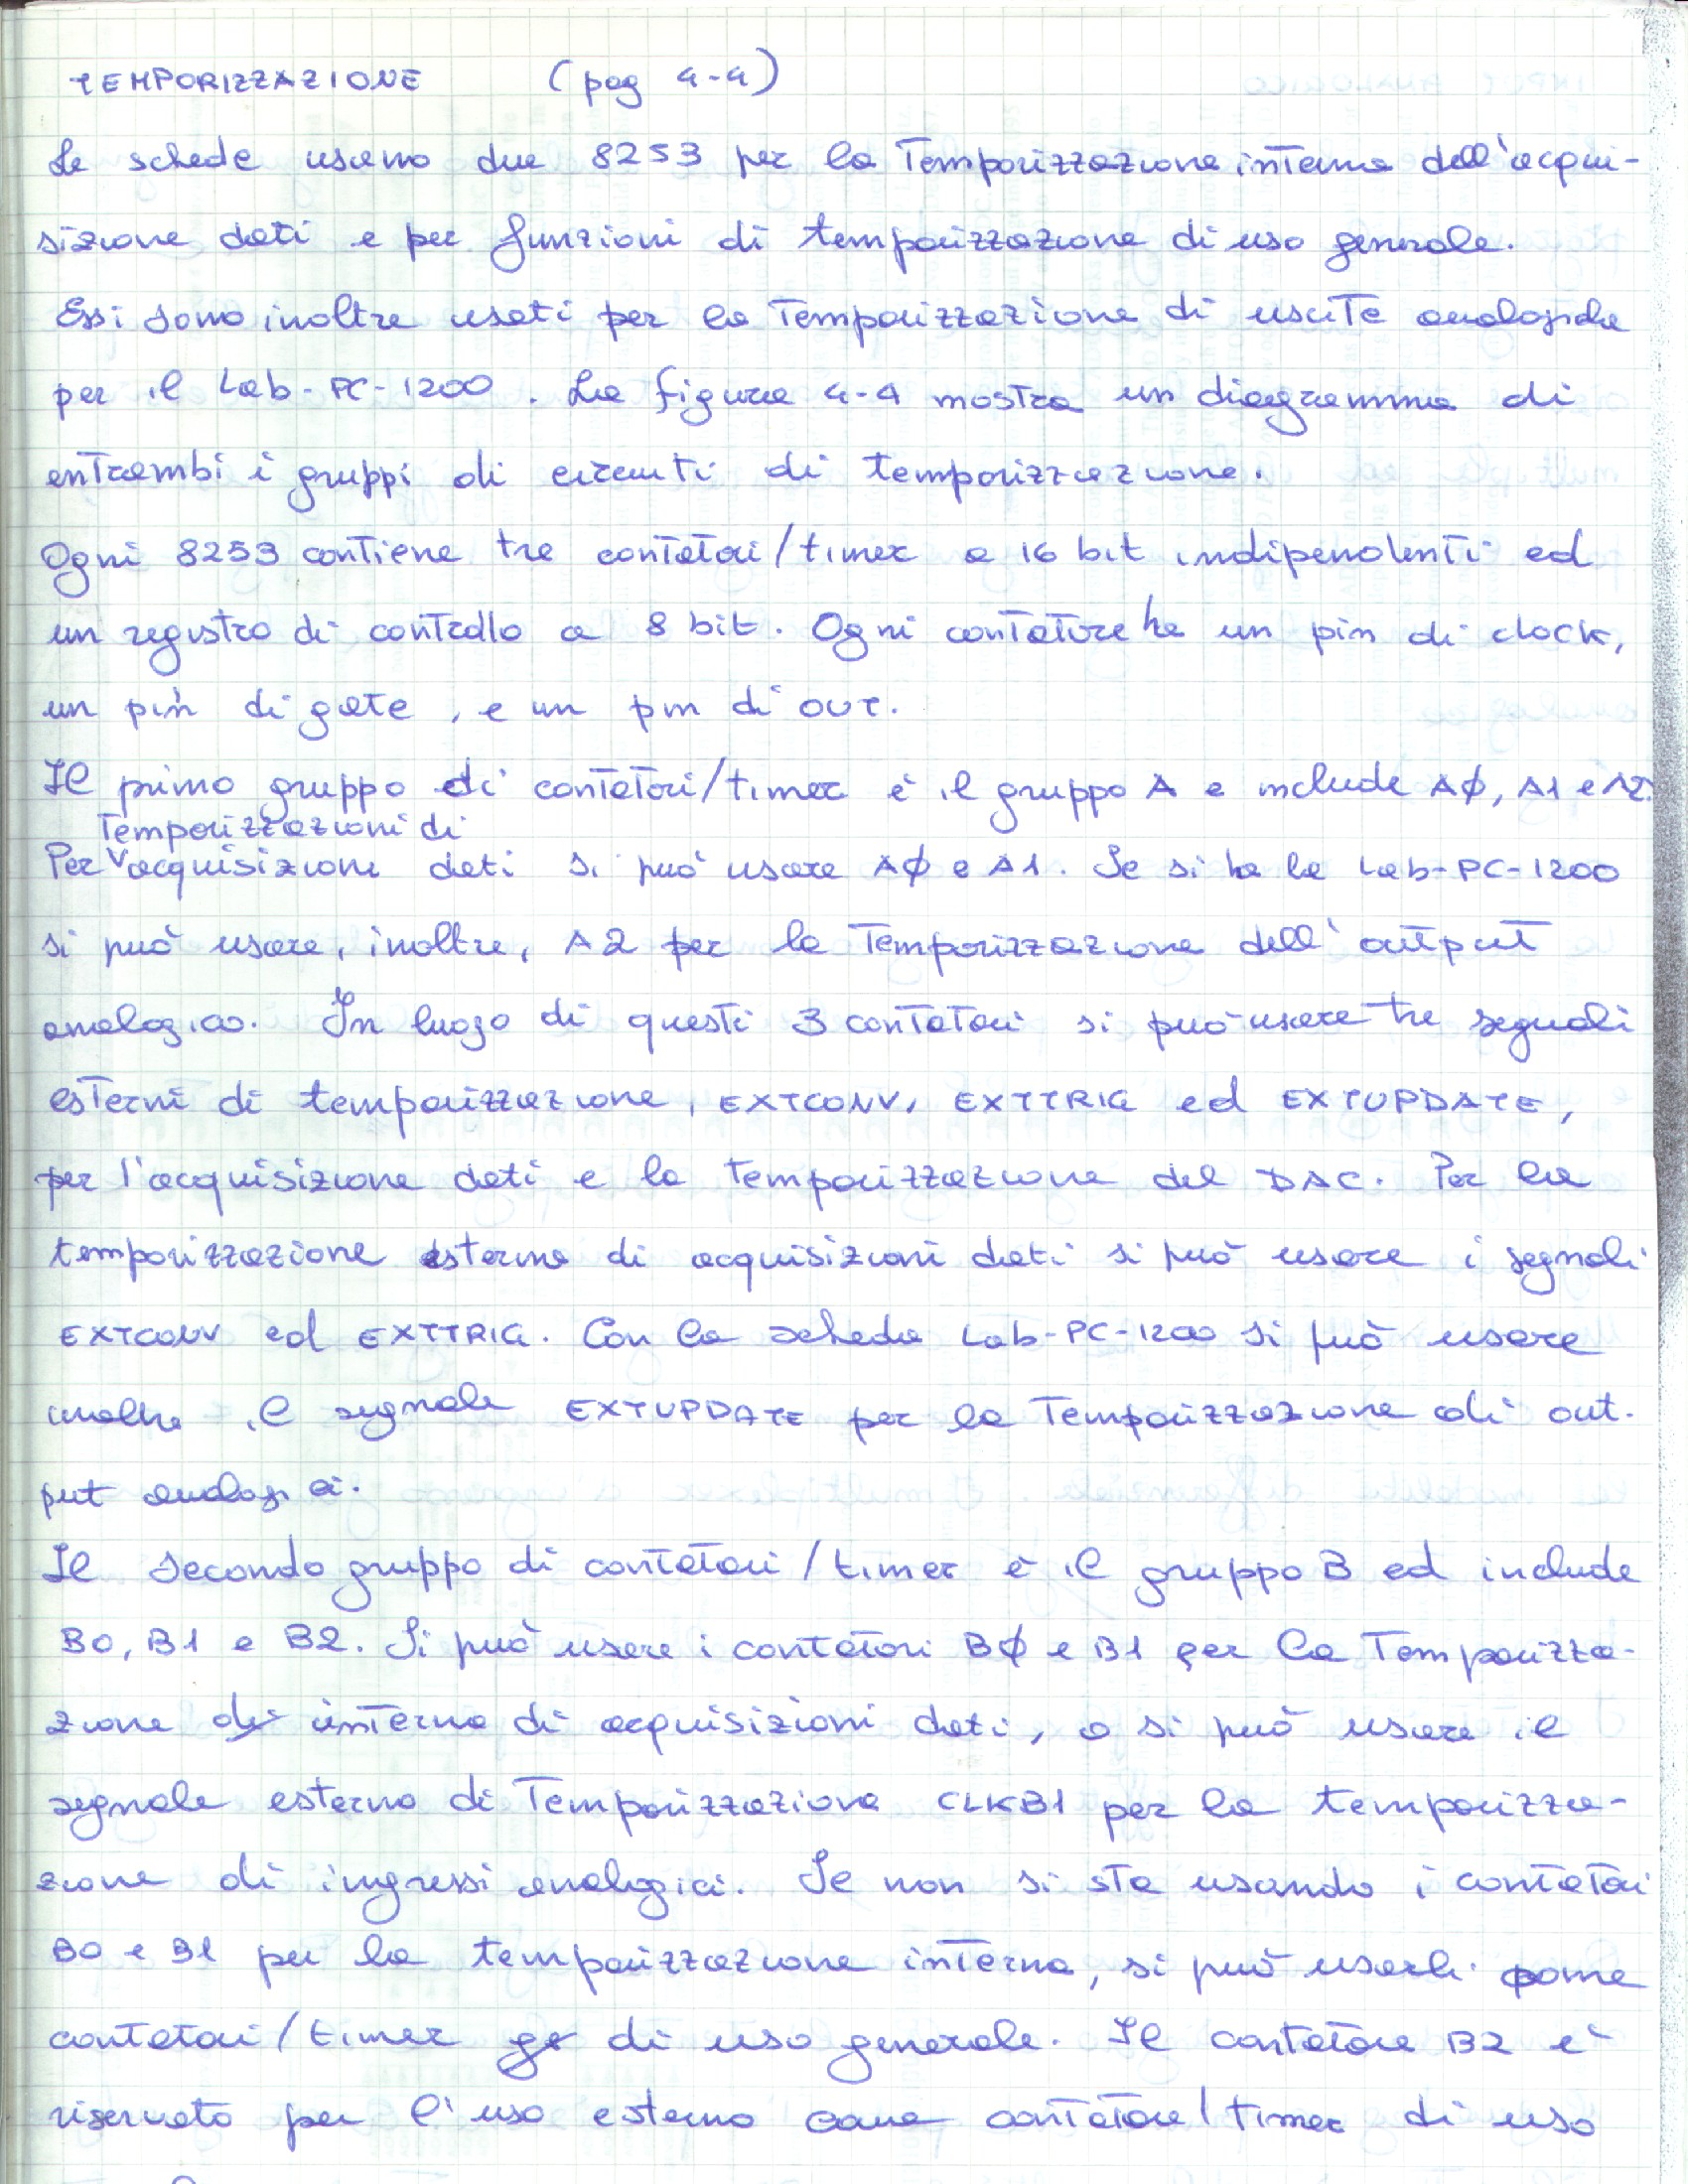 TEMPORIZZAZIONE (pag 4-4)
Le schede usano due 8253 per la Temporizzazione interna dell'acqui-
sizione dati e per funzioni di temporizzazione di uso generale.
Essi sono inoltre usati per la Temporizzazione di uscite analogiche
per il Lab-PC-1200. La figura 4-4 mostra un diagramma di
entrambi i gruppi di circuiti di temporizzazione.
Ogni 8253 contiene tre contatori/timer a 16 bit indipendenti ed
un registro di controllo a 8 bit. Ogni contatore ha un pin di clock,
un pin di gate, e un pin di out.
Il primo gruppo di contatori/timer è il gruppo A e include Aφ, A1 e A2.
Temporizzazioni di
Per acquisizioni dati si può usare Aφ e A1. Se si ha la Lab-PC-1200
si può usare, inoltre, A2 per la Temporizzazione dell'output
analogico. In luogo di questi 3 contatori si può usare tre segnali
esterni di temporizzazione, EXTCONV, EXTTRIG ed EXTUPDATE,
per l'acquisizione dati e la temporizzazione del DAC. Per la
temporizzazione esterna di acquisizioni dati si può usare i segnali
EXTCONV ed EXTTRIG. Con la scheda Lab-PC-1200 si può usare
inoltre il segnale EXTUPDATE per la Temporizzazione di out-
put analogici.
Il secondo gruppo di contatori/timer è il gruppo B ed include
B0, B1 e B2. Si può usare i contatori Bφ e B1 per la Temporizza-
zione di interna di acquisizioni dati, o si può usare il
segnale esterno di Temporizzazione CLKB1 per la temporizza-
zione di ingressi analogici. Se non si sta usando i contatori
B0 e B1 per la temporizzazione interna, si può usarli come
contatori/timer ge di uso generale. Il contatore B2 è
riservato per l'uso esterno come contatore/timer di uso